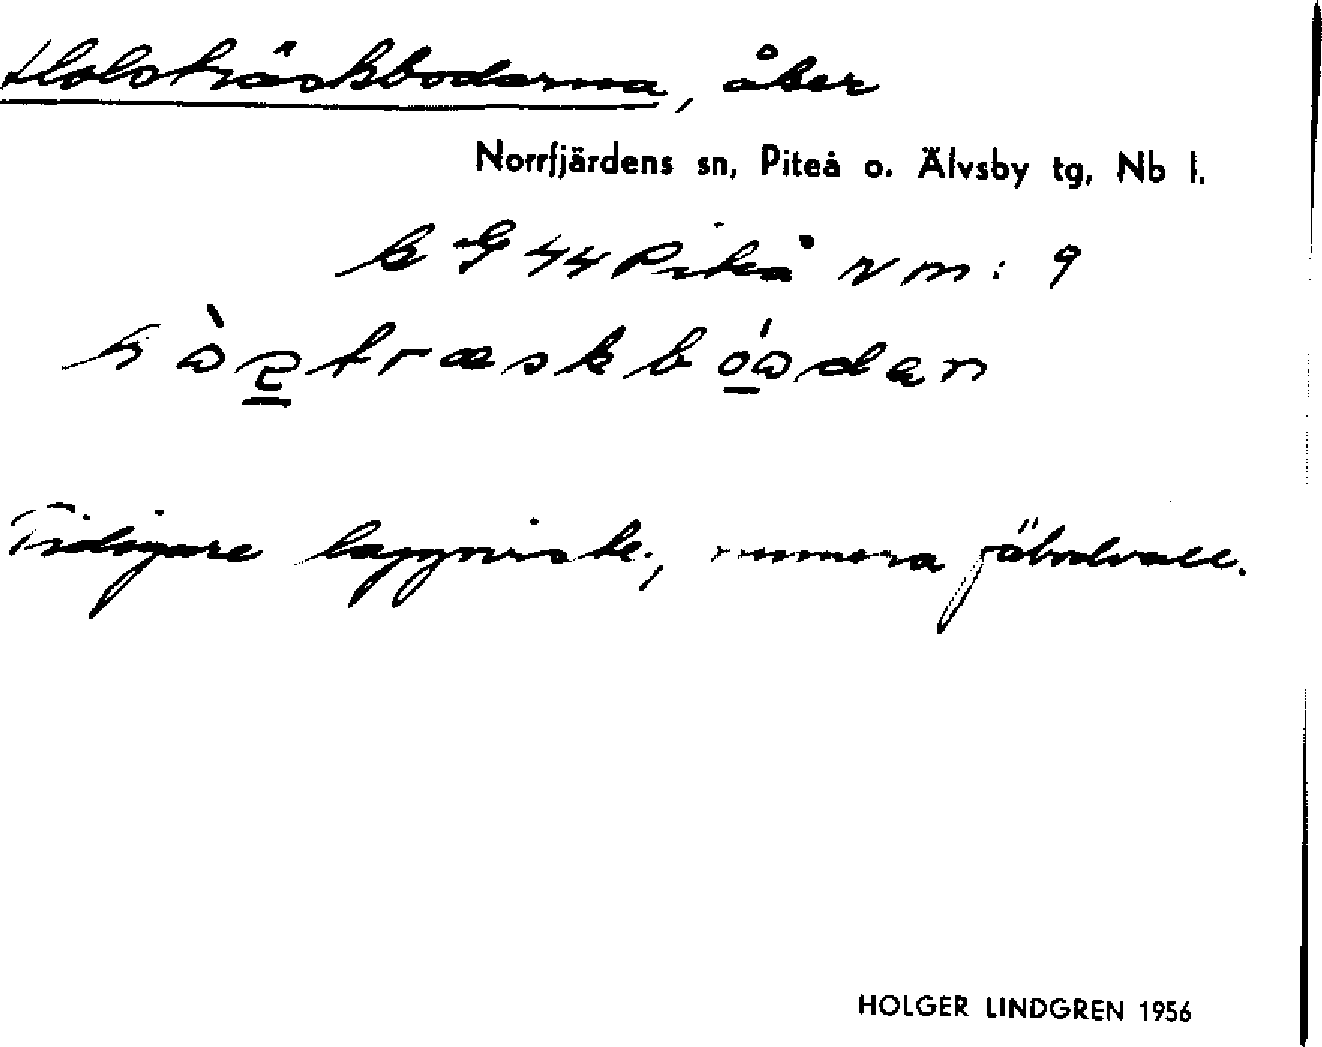 Holsträskbodarna, åker
Norrfjärdens sn, Piteå o. Älvsby tg, Nb l.
k G 44 Piteå N m: 9
Tidigare lappviste, numera fäbodvall.
HOLGER LINDGREN 1956